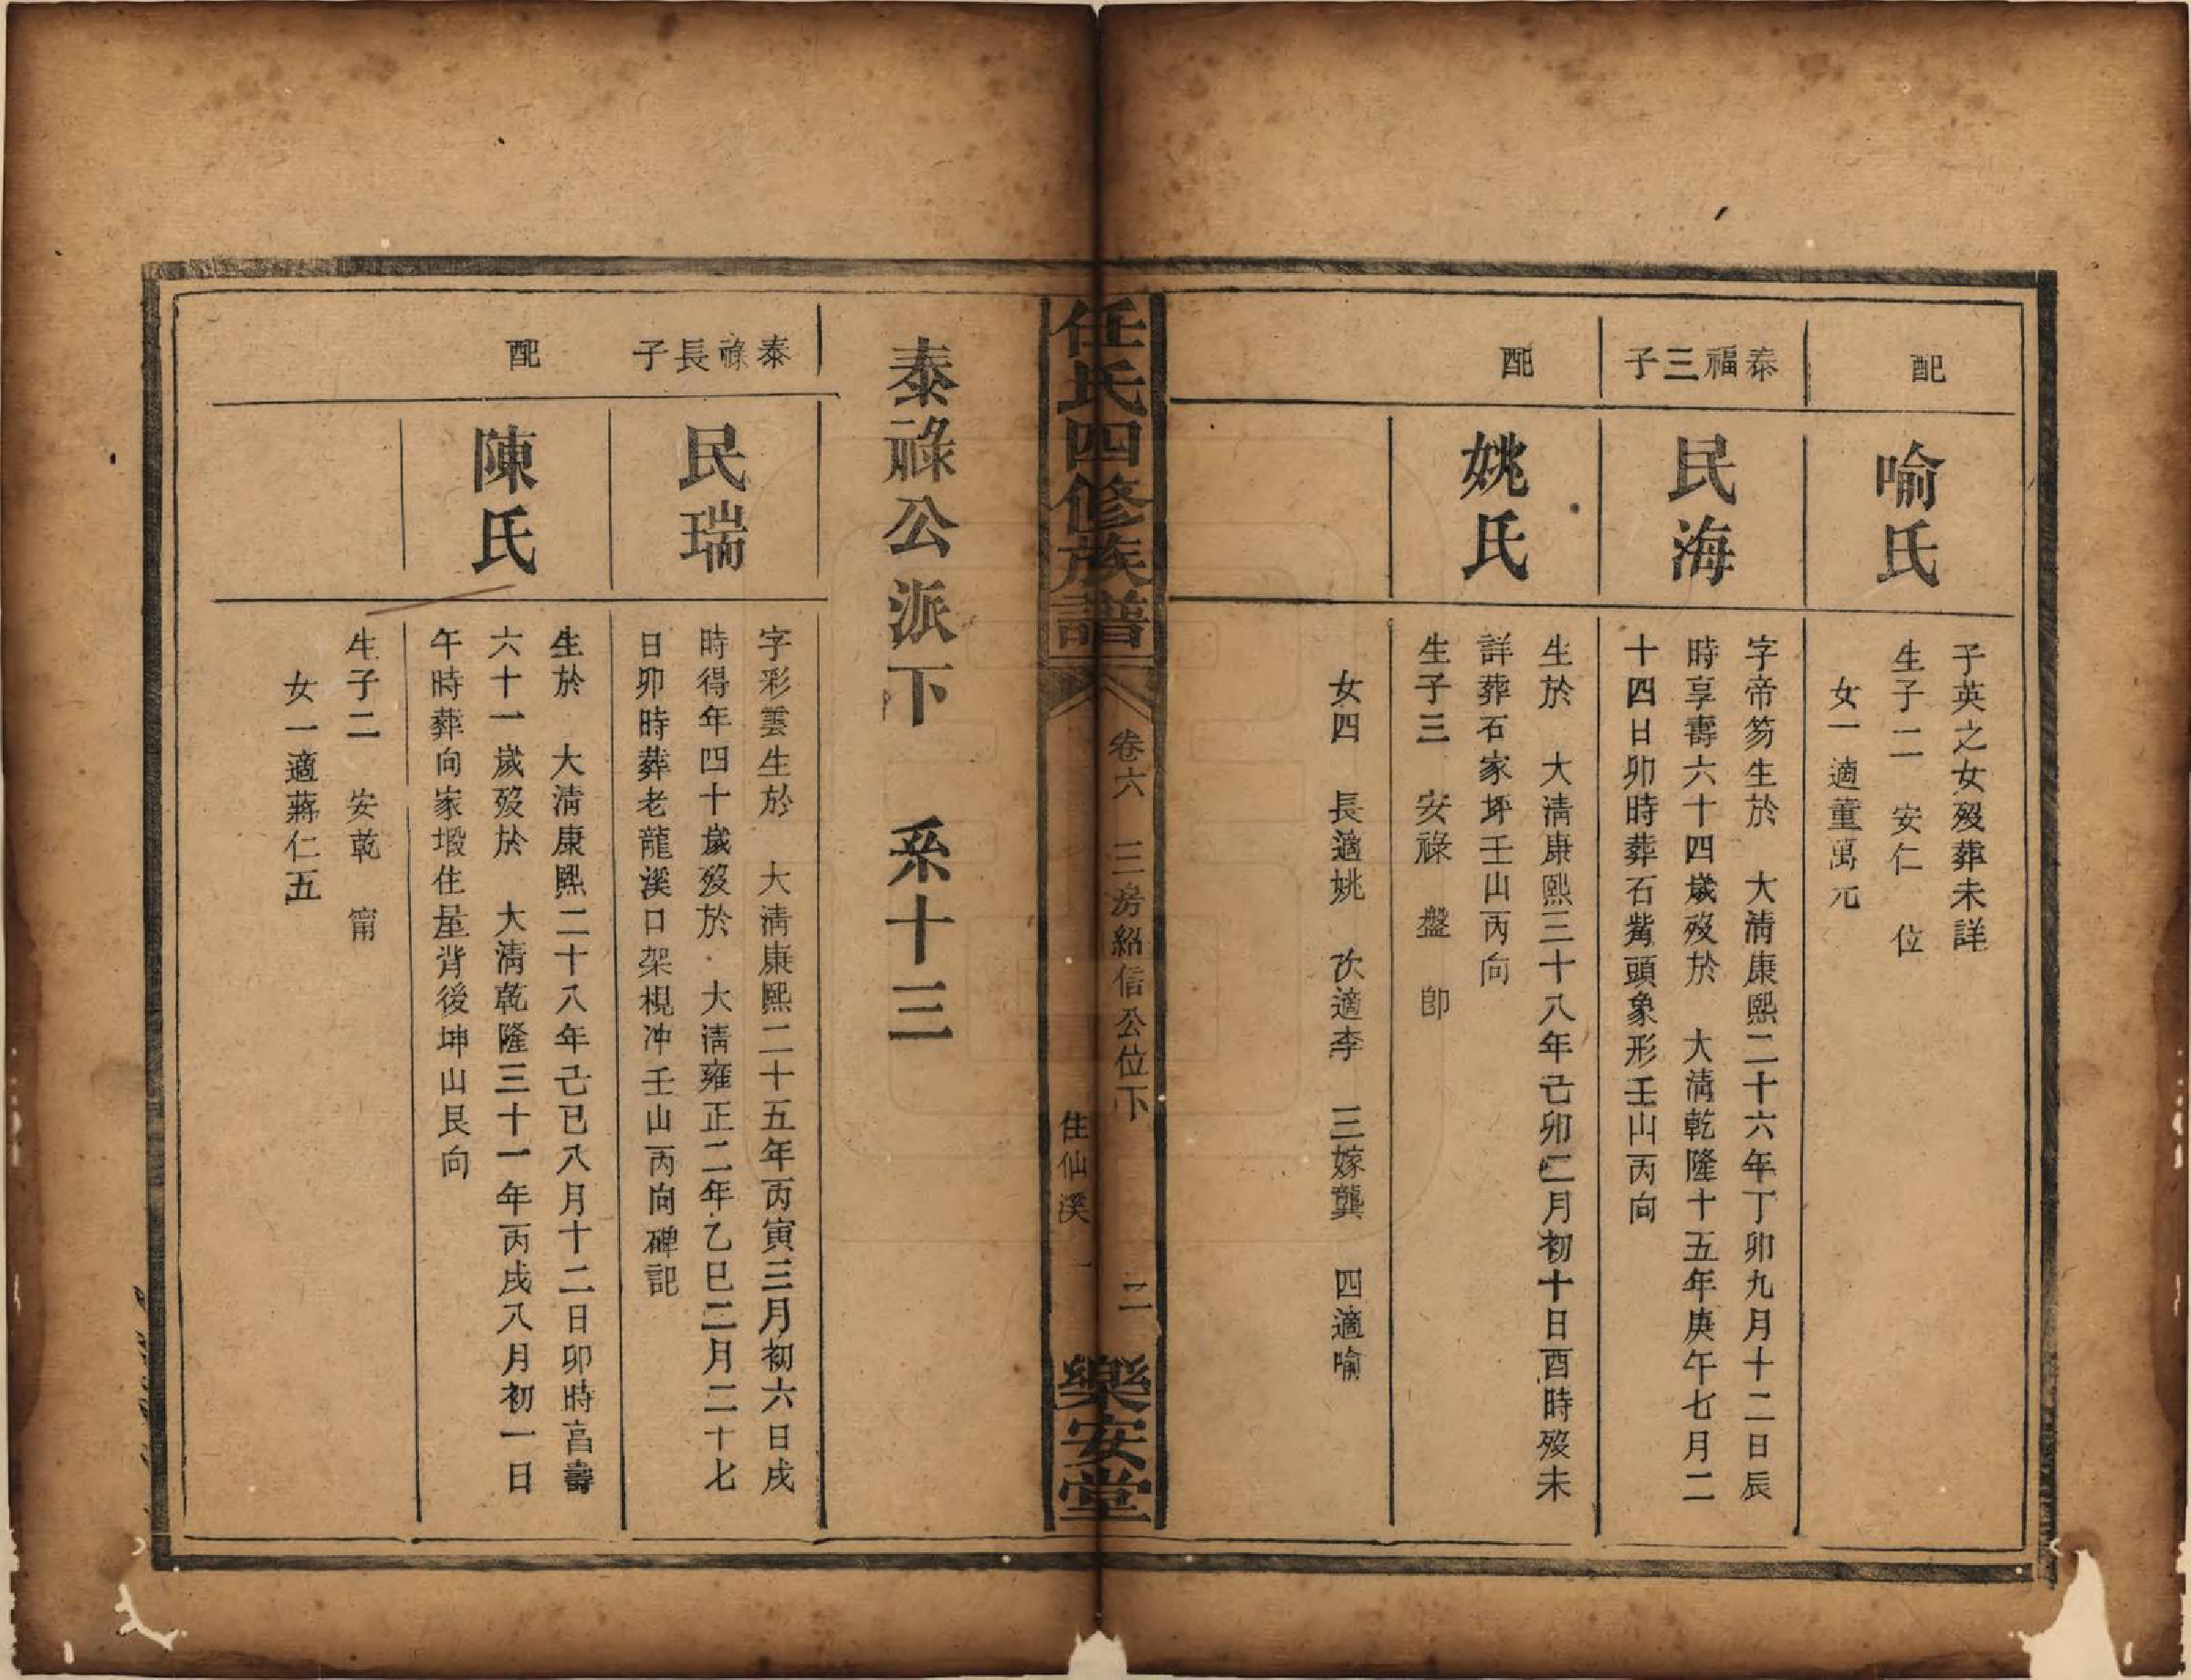 配
喻氏
子英之女歿葬未詳
生子二　安仁　位
女一適董萬元
泰福三子
民海
字帝笏生於　大清康熙二十六年丁卯九月十二日辰
時享壽六十四歲歿於　大清乾隆十五年庚午七月二
十四日卯時葬石觜頭象形壬山丙向
配
姚氏
生於　大清康熙三十八年己卯二月初十日酉時歿未
詳葬石家坪壬山丙向
生子三　安祿　盤　卽
女四　長適姚　次適李　三嫁龔　四適喻
任氏四修族譜
卷六　三房紹信公位下　二
住仙溪
樂安堂
泰祿公派下　系十三
泰祿長子
民瑞
字彩雲生於　大清康熙二十五年丙寅三月初六日戌
時得年四十歲歿於　大清雍正二年乙巳二月二十七
日卯時葬老龍溪口架梘冲壬山丙向碑記
配
陳氏
生於　大清康熙二十八年己巳八月十二日卯時享壽
六十一歲歿於　大清乾隆三十一年丙戌八月初一日
午時葬向家塅住屋背後坤山艮向
生子二　安乾　甯
女一適蔣仁五